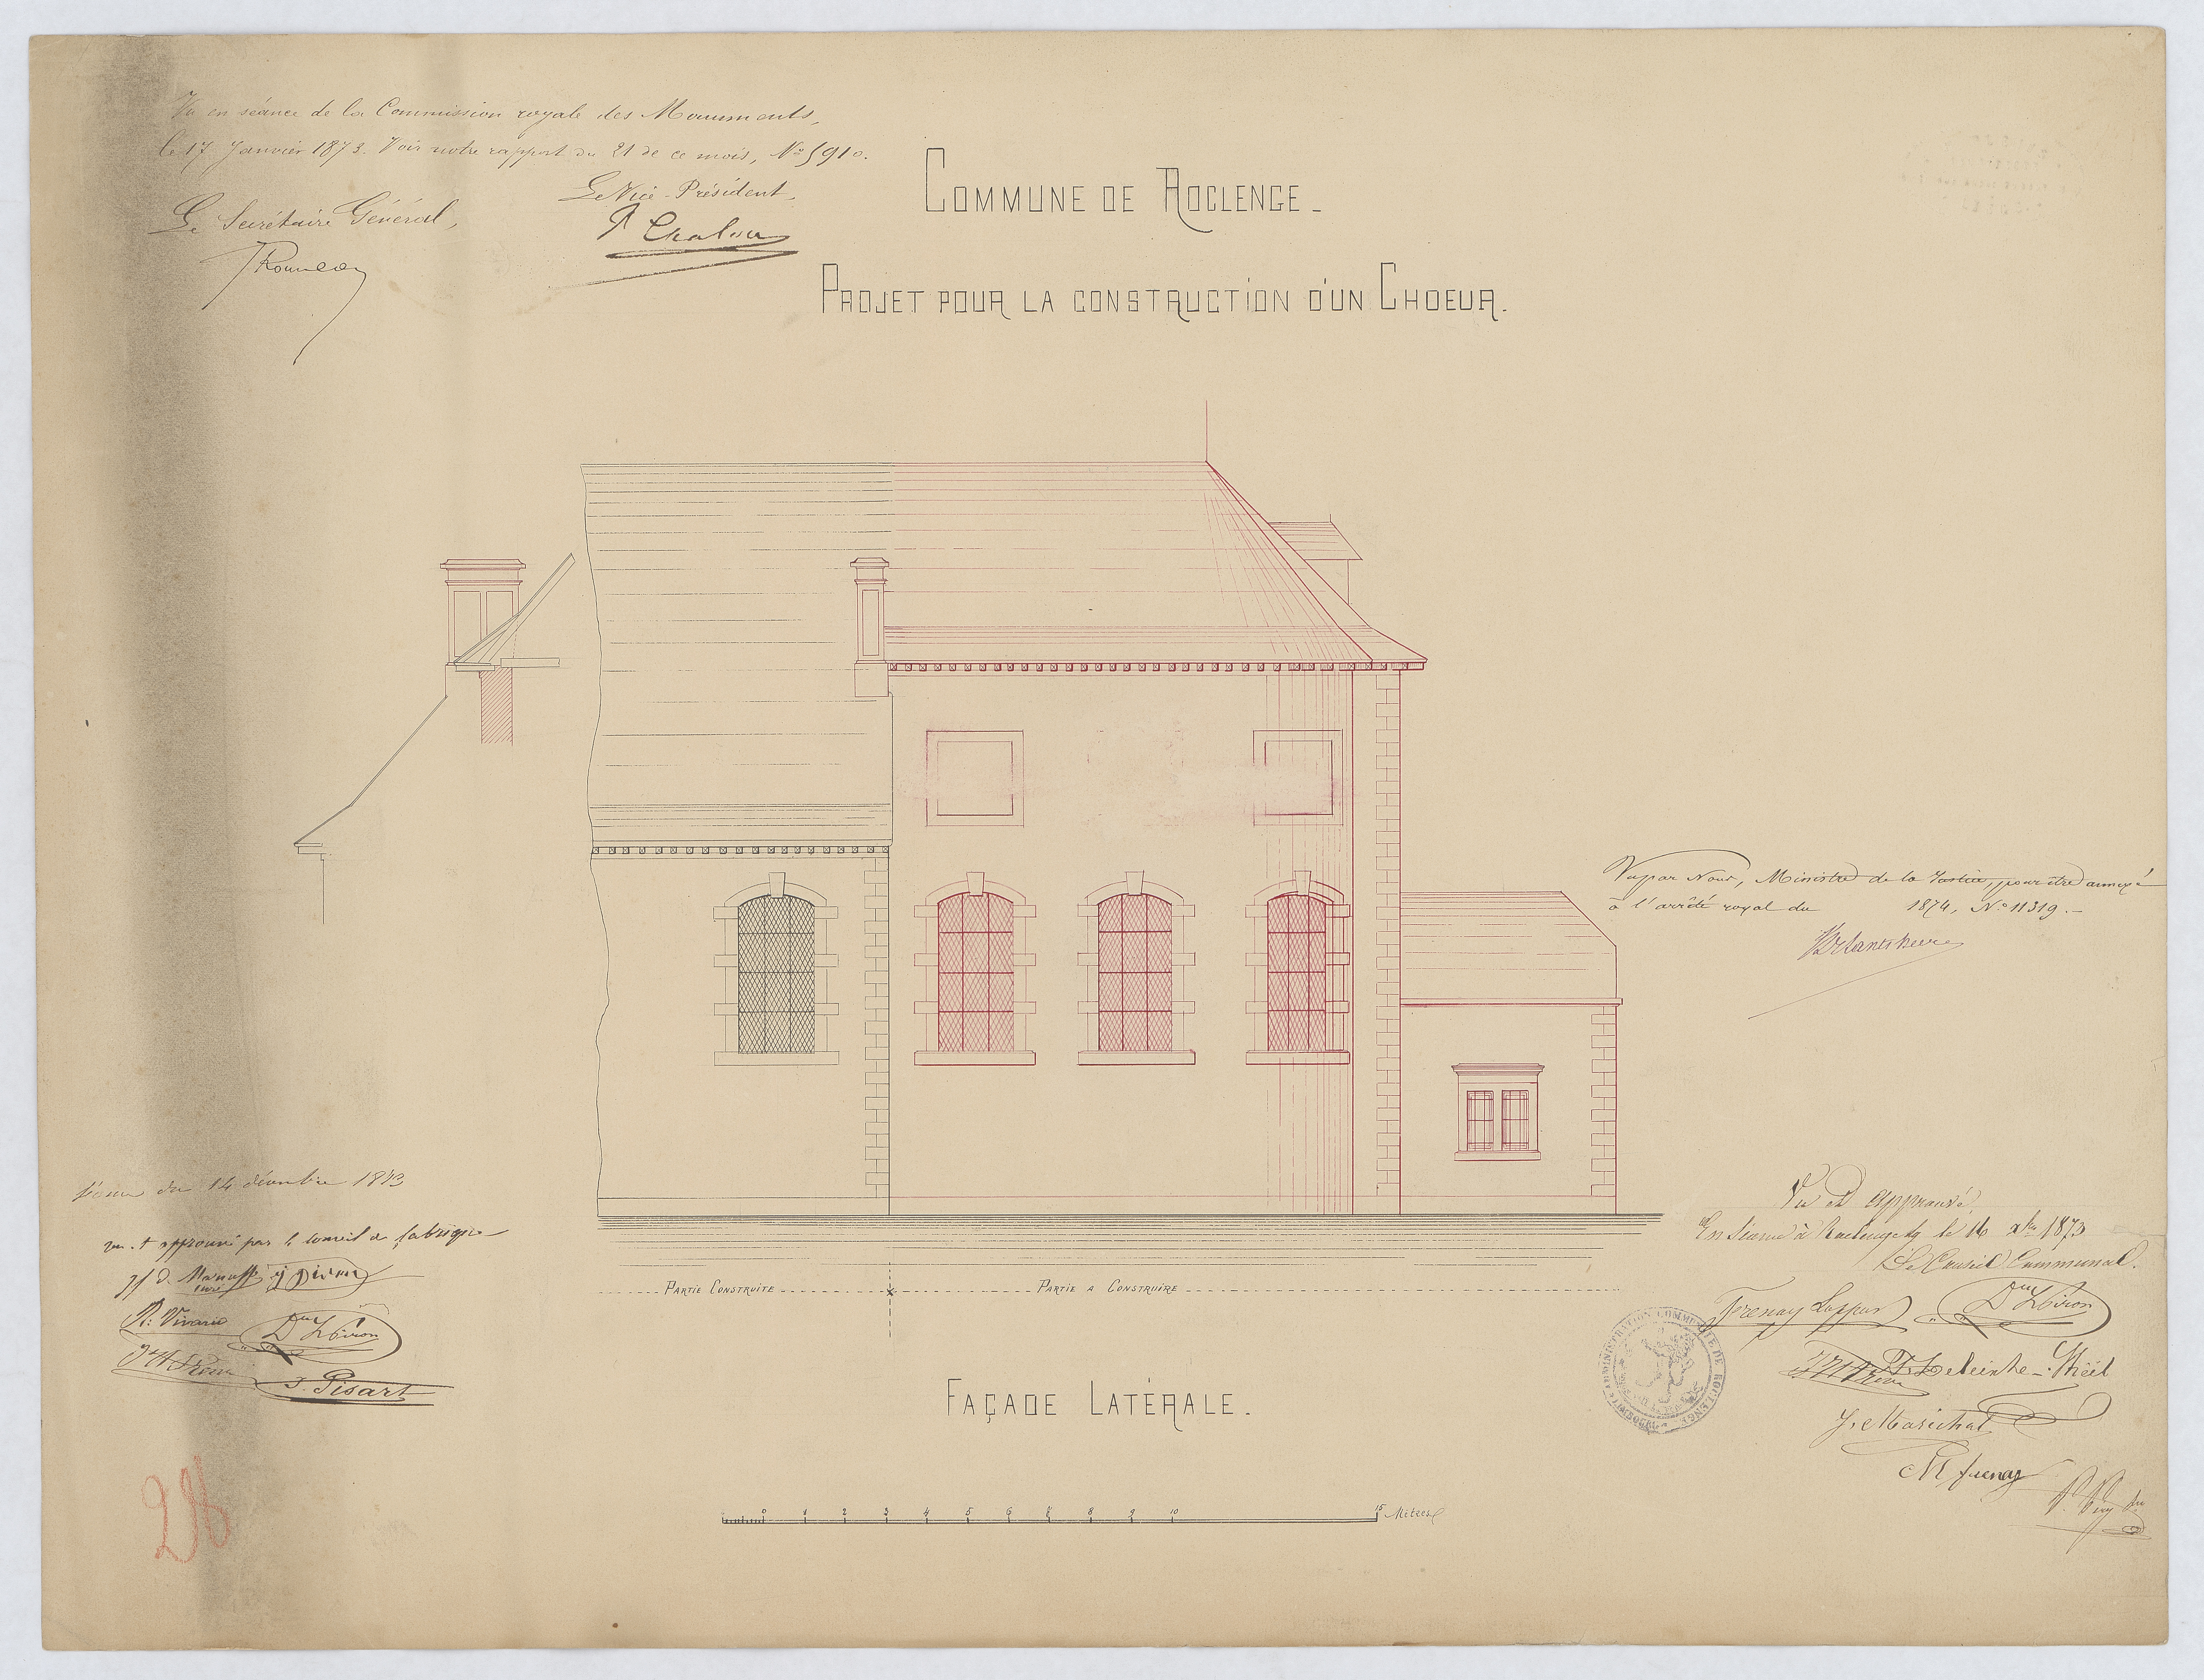 Vu en séance de la Commission royale des Monuments,
le 17 Janvier 1873. Voir notre rapport du 21 de ce mois, N° 5910.
Le Secrétaire Général,
Le Vice-Président,
Chalon
COMMUNE DE ROCLENGE.
PROJET POUR LA CONSTRUCTION D'UN CHOEUR.
Vu par Nous, Ministre de la Justice, pour être annexé
à l'arrêté royal du 1874, N° 11319.
Séance du 14 décembre 1873
approuvé par le conseil de fabrique
curé
Pisart
Vu et approuvé,
En séance à Roclenge le 16 Xbre 1873
Le Conseil Communal.
Frenay
J. Maréchal
M frenay
PARTIE CONSTRUITE
PARTIE A CONSTRUIRE
ADMINISTRATION COMMUNALE DE ROCLENGE
LIMBOURG
FAÇADE LATÉRALE.
0 1 2 3 4 5 6 7 8 9 10 15 Mètres